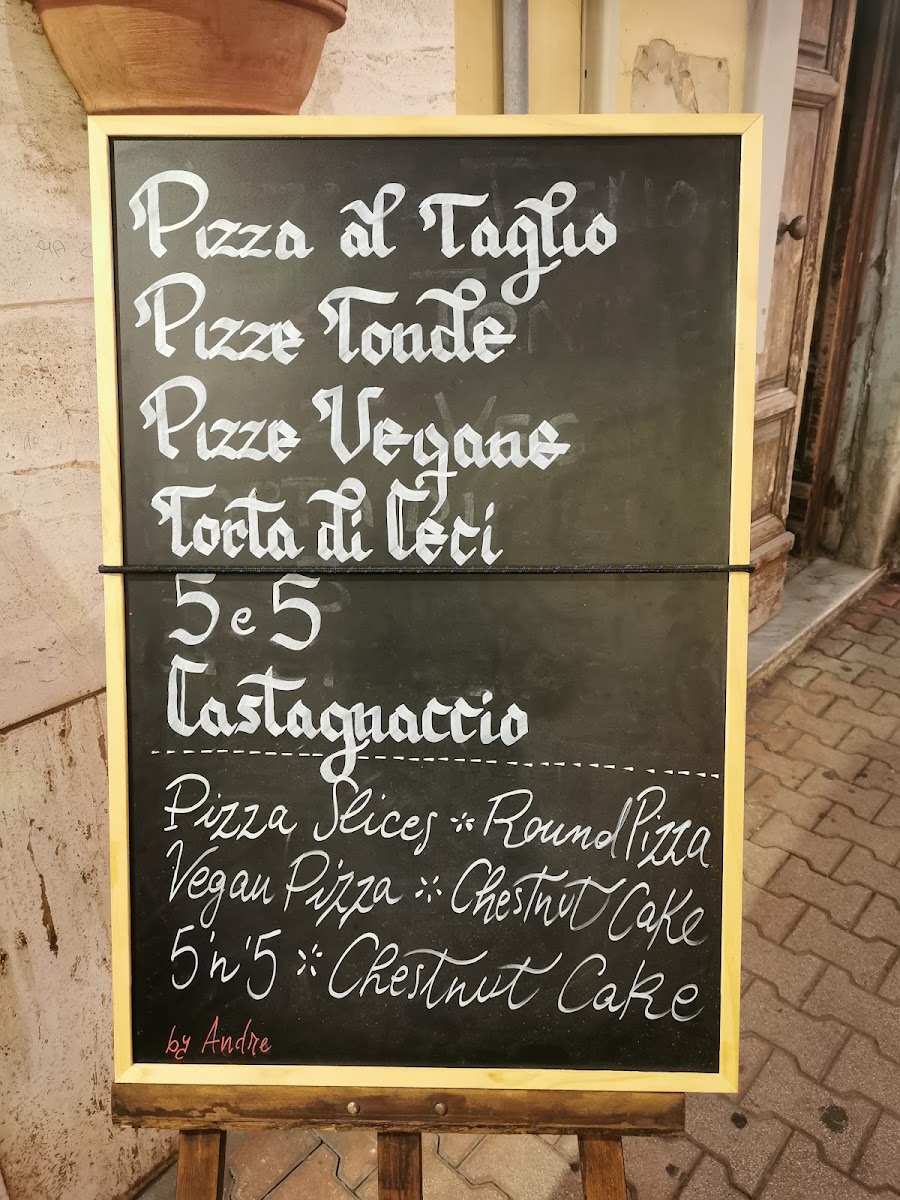 Pizza al Taglio
Pizze Tonde
Pizze Vegane
Torta di Ceci
5 e 5
Castagnaccio
Pizza Slices * Round Pizza
Vegan Pizza * Chestnut Cake
5'n'5 * Chestnut Cake
by Andre